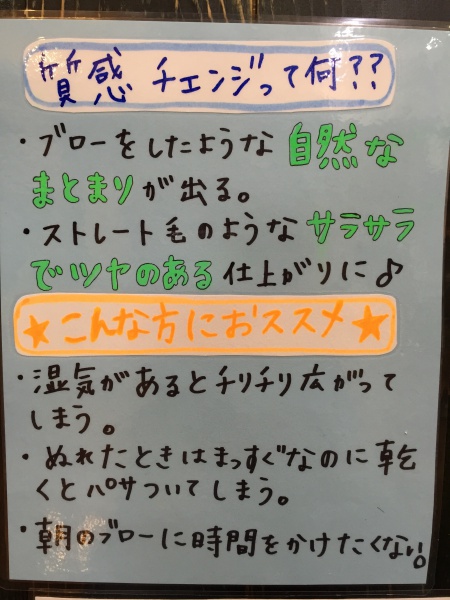 質感チェンジって何??
・ブローをしたような自然な
まとまりが出る。
・ストレート毛のようなサラサラ
でツヤのある仕上がりに♪
★こんな方におススメ★
・湿気があるとチリチリ広がって
しまう。
・ぬれたときはまっすぐなのに乾
くとパサついてしまう。
・朝のブローに時間をかけたくない。